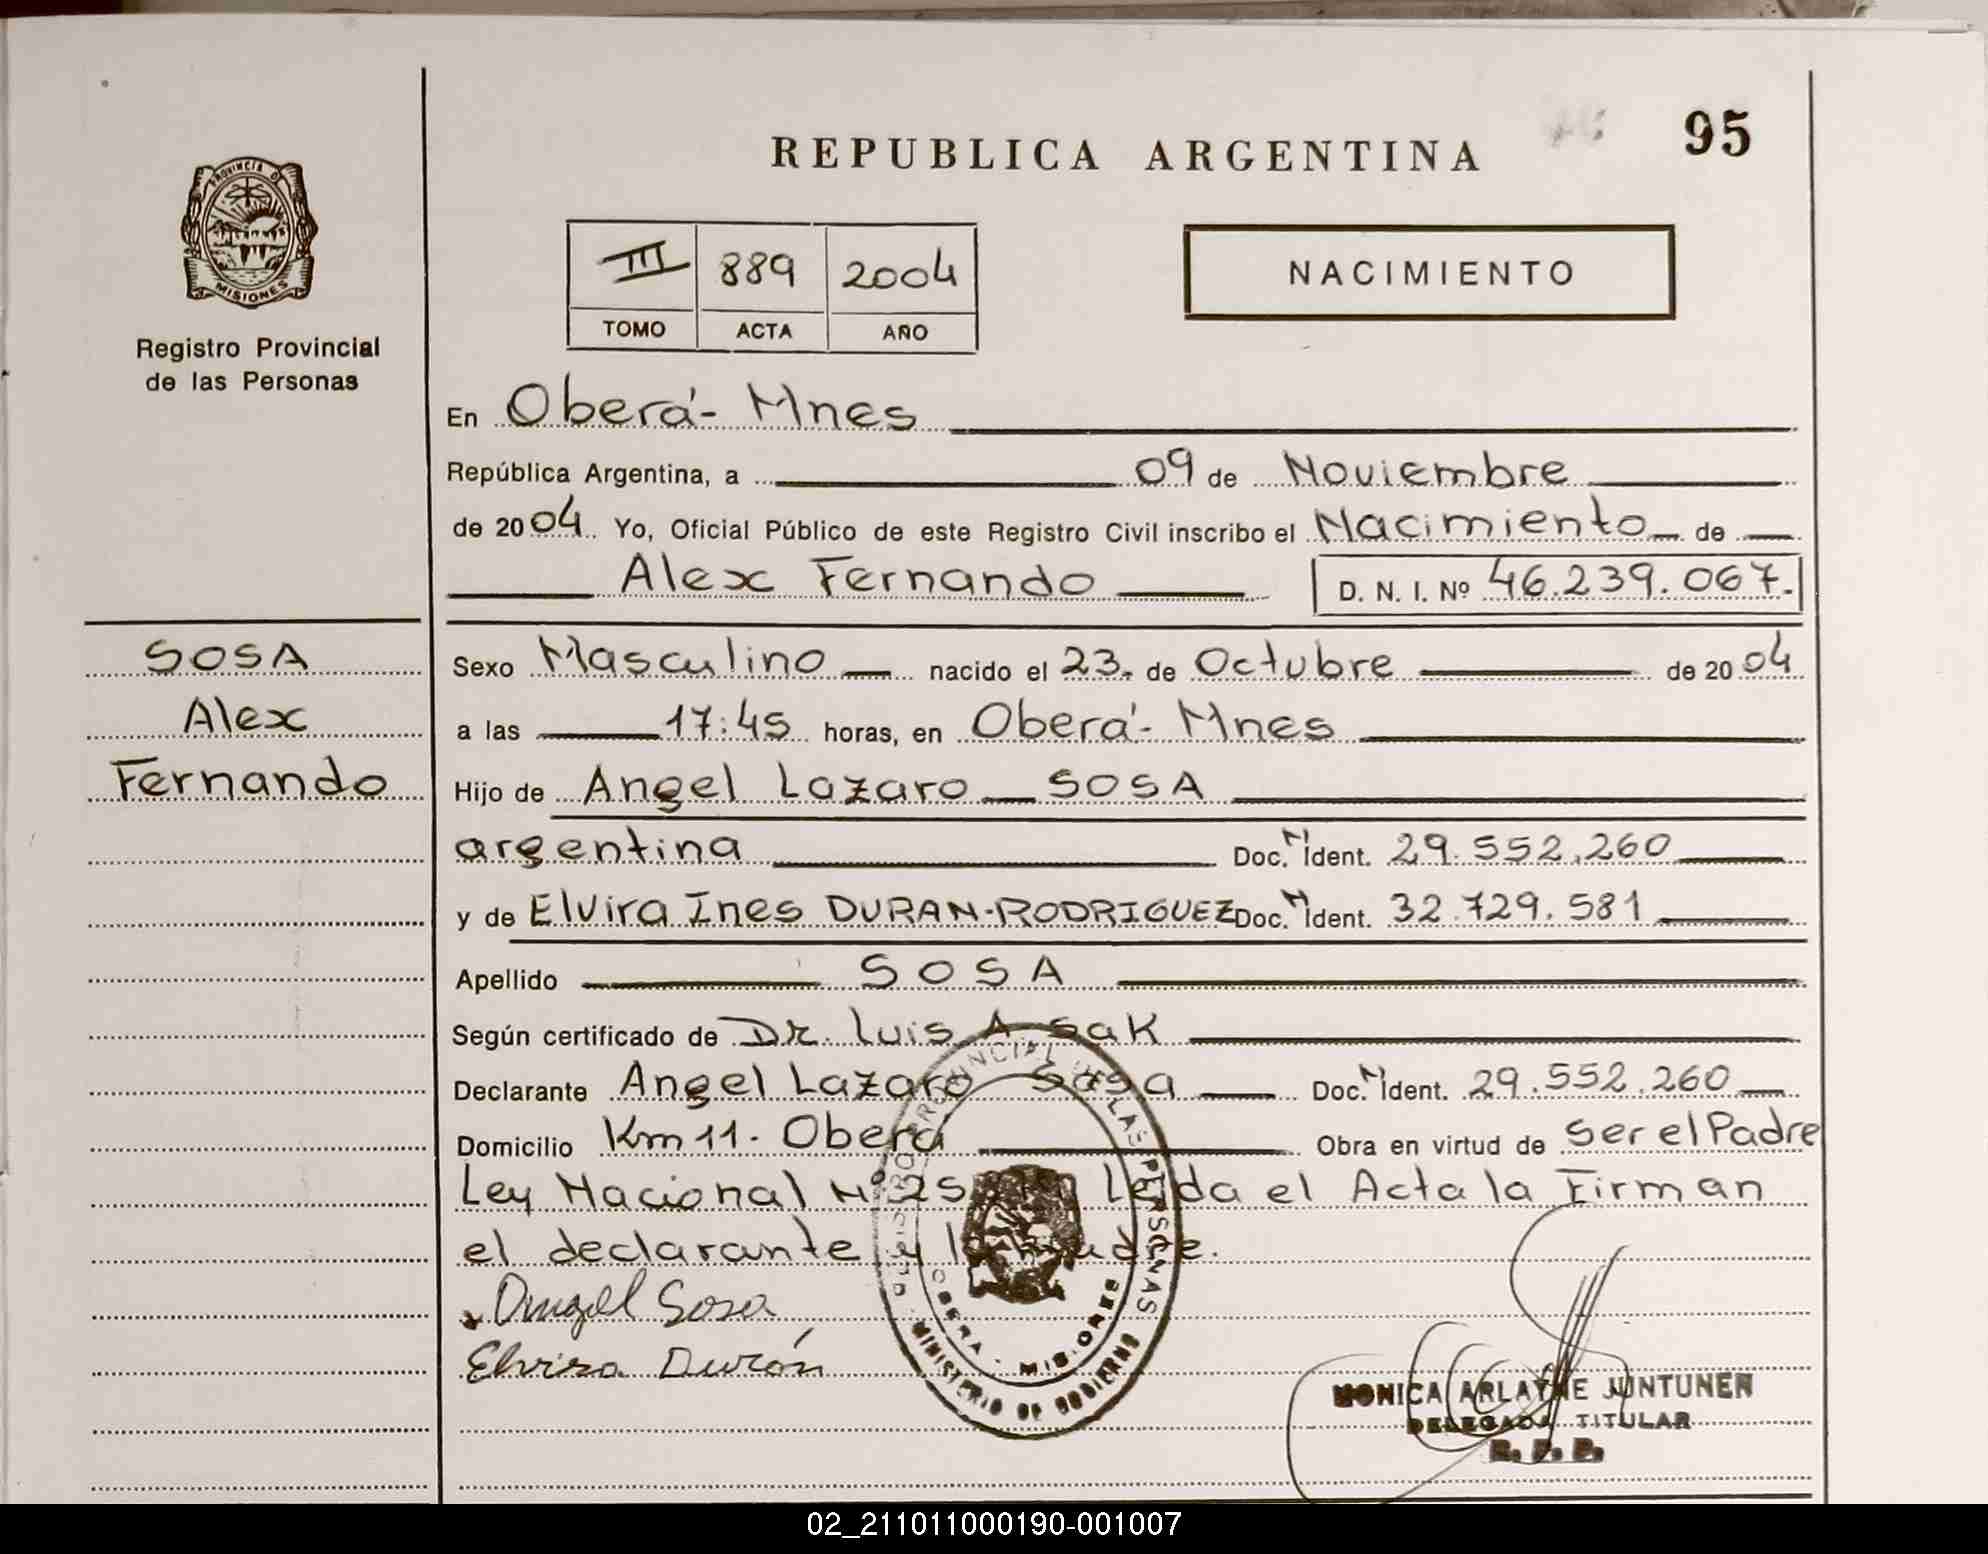 REPUBLICA ARGENTINA
95
PROVINCIA D
MISIONES
Registro Provincial
de las Personas
III 889 2004
TOMO ACTA AÑO
NACIMIENTO
En Oberá - Mnes
República Argentina, a 09 de Noviembre
de 2004 Yo, Oficial Público de este Registro Civil inscribo el Nacimiento de
Alex Fernando D. N. I. Nº 46.239.067.
SOSA
Alex
Fernando
Sexo Masculino nacido el 23. de Octubre de 2004
a las 17:45 horas, en Oberá - Mnes
Hijo de Angel Lazaro SOSA
argentina Doc. N. Ident. 29.552.260
y de Elvira Ines DURAN-RODRIGUEZ Doc. N. Ident. 32.729.581
Apellido SOSA
Según certificado de Dr. Luis A Sak
Declarante Angel Lazaro Sosa Doc. N. Ident. 29.552.260
Domicilio Km 11. Oberá Obra en virtud de Ser el Padre
Ley Nacional Nº Leida el Acta la Firman
el declarante y la madre.
Angel Sosa
Elvira Durán
PROVINCIAL DE LAS PERSONAS
OBERA - MISIONES
MINISTERIO DE GOBIERNO
MONICA ARLAYNE JUNTUNEN
DELEGADA TITULAR
R. P. P.
02_211011000190-001007